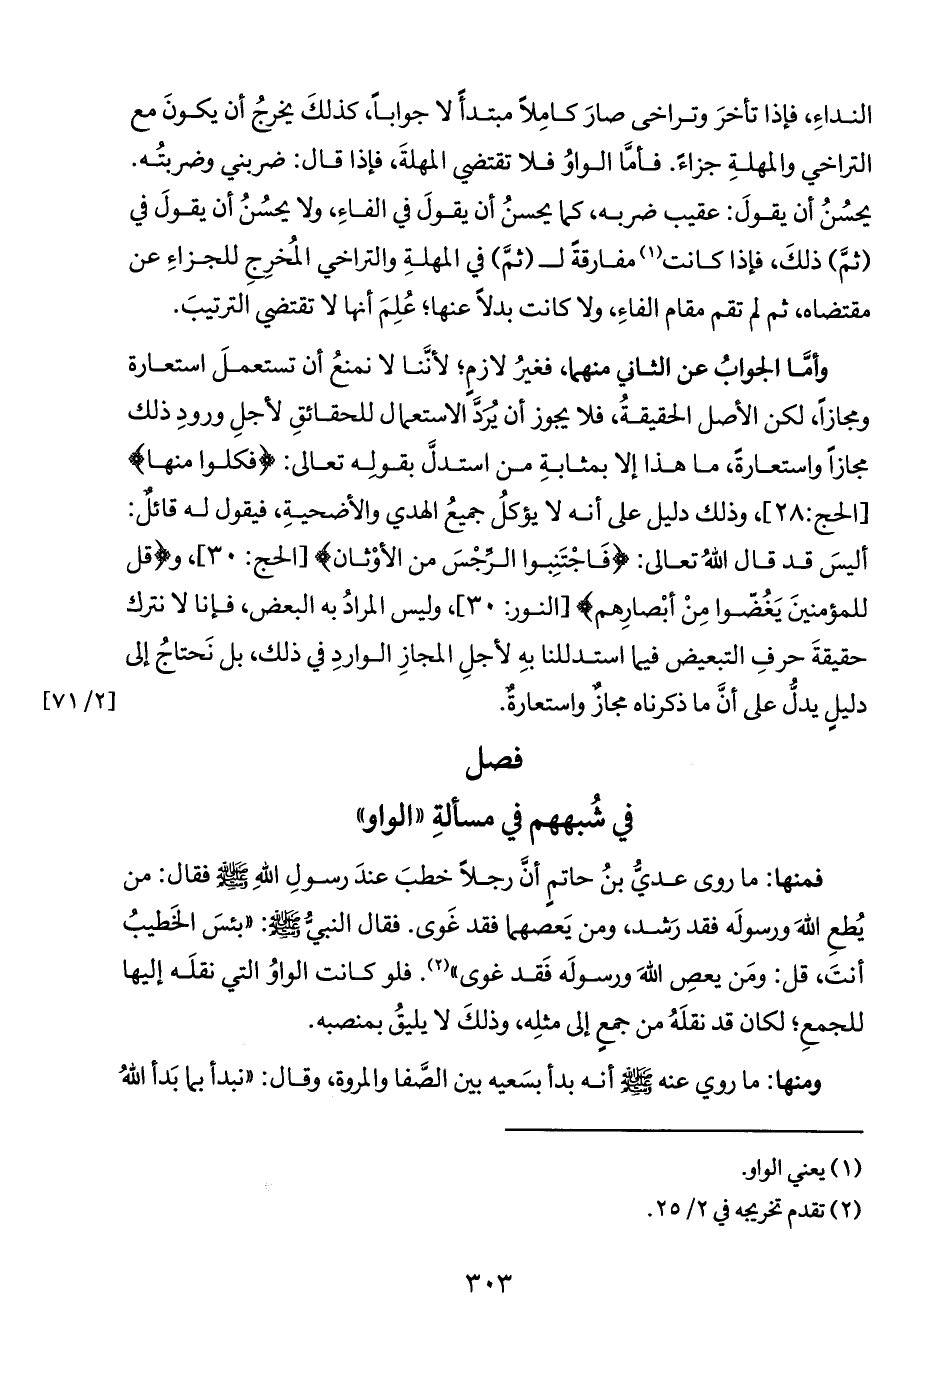 النداءِ، فإذا تأخرَ وتراخى صارَ كاملاً مبتدأً لا جواباً، كذلكَ يخرجُ أن يكونَ مع
التراخي والمهلةِ جزاءً. فأمَّا الواوُ فلا تقتضي المهلةَ، فإذا قال: ضربني وضربتُه.
يحسُنُ أن يقولَ: عقيب ضربه، كما يحسنُ أن يقولَ في الفاءِ، ولا يحسُنُ أن يقولَ في
(ثمَّ) ذلكَ، فإذا كانت(١) مفارقةً لـ (ثمَّ) في المهلةِ والتراخي المُخرِجِ للجزاءِ عن
مقتضاه، ثم لم تقم مقام الفاءِ، ولا كانت بدلاً عنها؛ عُلِمَ أنها لا تقتضي الترتيبَ.
وأمَّا الجوابُ عن الثاني منهما، فغيرُ لازمٍ؛ لأنَّنا لا نمنعُ أن تستعملَ استعارة
ومجازاً، لكن الأصل الحقيقةُ، فلا يجوز أن يُرَدَّ الاستعمال للحقائقِ لأجلِ ورودِ ذلك
مجازاً واستعارةً، ما هذا إلا بمثابةِ من استدلَّ بقوله تعالى: ﴿فكلوا منها﴾
[الحج:٢٨]، وذلك دليل على أنه لا يؤكلُ جميعُ الهدي والأضحيةِ، فيقول له قائلٌ:
أليسَ قد قال اللهُ تعالى: ﴿فَاجْتَنِبوا الرِّجْسَ من الأوْثان﴾ [الحج: ٣٠]، و﴿قل
للمؤمنينَ يَغُضّوا مِنْ أبْصارِهم﴾ [النور: ٣٠]، وليس المرادُ به البعض، فإنا لا نترك
حقيقةَ حرفِ التبعيض فيما استدللنا بهِ لأجلِ المجازِ الواردِ في ذلك، بل نَحتاجُ إلى
دليلٍ يدلُّ على أنَّ ما ذكرناه مجازٌ واستعارةٌ.
[٧١/٢]
فصل
في شُبههم في مسألةِ «الواو»
فمنها: ما روى عديُّ بنُ حاتمٍ أنَّ رجلاً خطبَ عندَ رسولِ اللهِ ﷺ فقال: من
يُطعِ اللهَ ورسولَه فقد رَشد، ومن يَعصهما فقد غَوى. فقال النبيُّ ﷺ: «بئسَ الخَطيبُ
أنتَ، قل: ومَن يعصِ اللهَ ورسولَه فَقد غوى»(٢). فلو كانت الواوُ التي نقلَه إليها
للجمعِ؛ لكان قد نقلَهُ من جمعٍ إلى مثلِه، وذلكَ لا يليقُ بمنصبه.
ومنها: ما روي عنه ﷺ أنه بدأ بسَعيه بين الصَّفا والمروة، وقال: «نبدأ بما بَدأ اللهُ
(١) يعني الواو.
(٢) تقدم تخريجه في ٢/ ٢٥.
٣٠٣